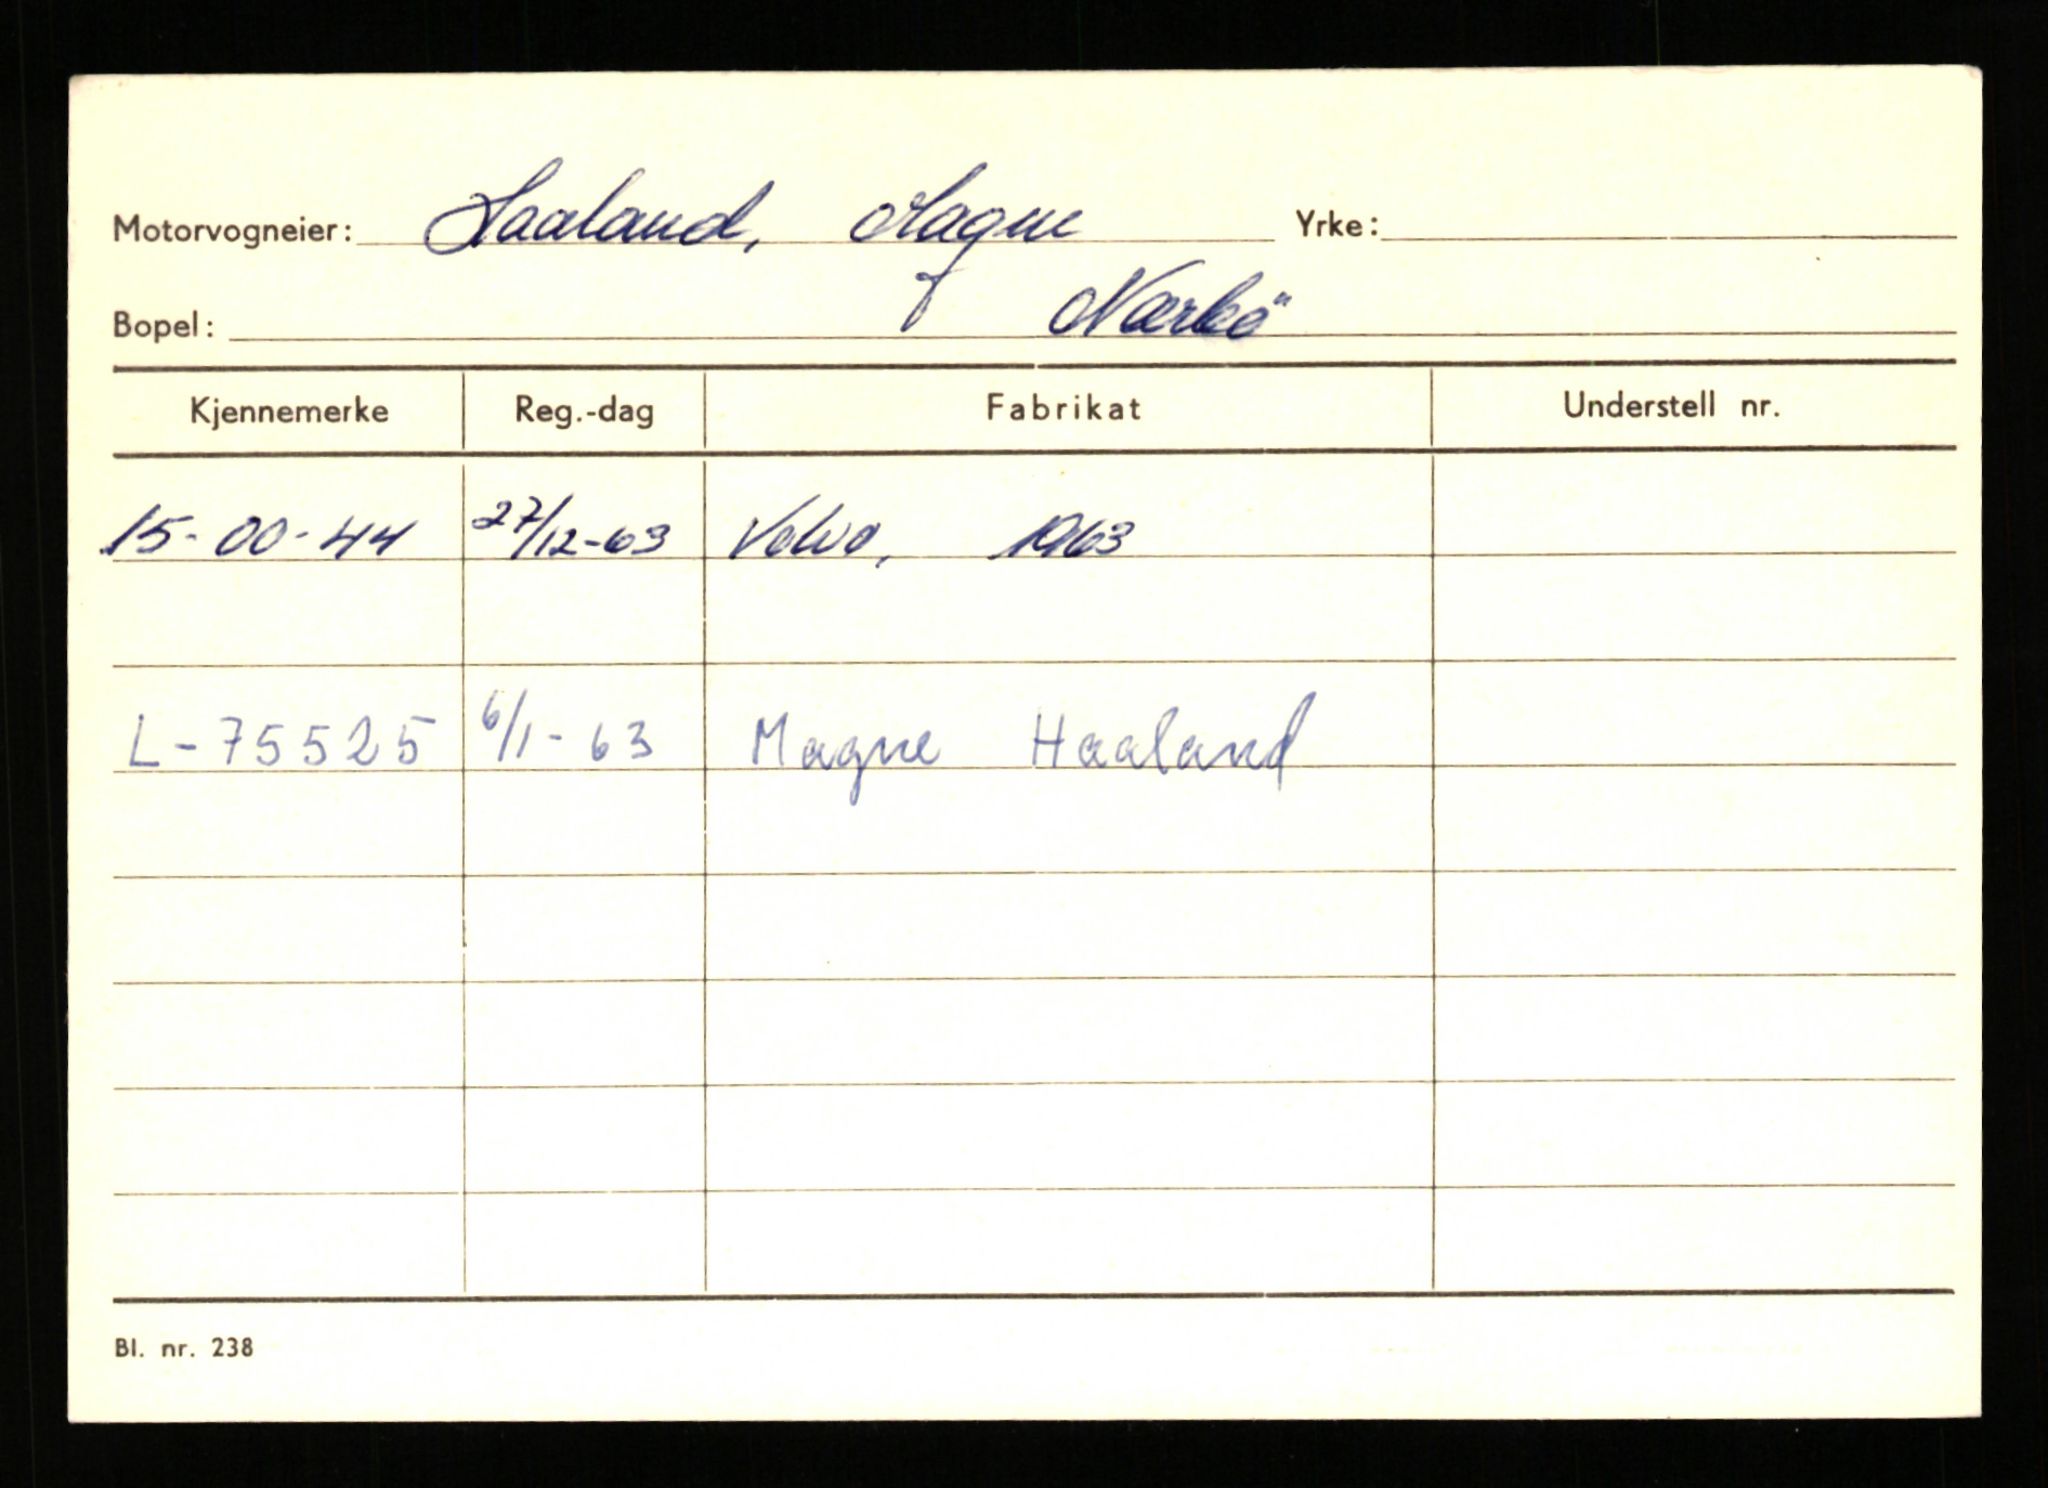 Motorvogneier: Haaland, Magne Yrke:
Bopel: Nærbö
Kjennemerke Reg.-dag Fabrikat Understell nr.
15-00-44 27/12-63 Volvo, 1963
L-75525 6/1-63 Magne Haaland
Bl. nr. 238